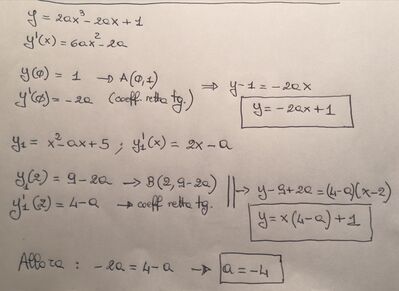 y = 2ax³ - 2ax + 1
y'(x) = 6ax² - 2a
y(0) = 1 → A(0,1)
y'(0) = -2a (coeff. retta tg.) ⇒ y-1 = -2ax
y = -2ax + 1
y₁ = x² - ax + 5 ; y₁'(x) = 2x - a
y₁(2) = 9 - 2a → B(2, 9-2a) → y - 9 + 2a = (4-a)(x-2)
y₁'(2) = 4 - a → coeff retta tg.
y = x(4-a) + 1
Allora : -2a = 4-a → a = -4